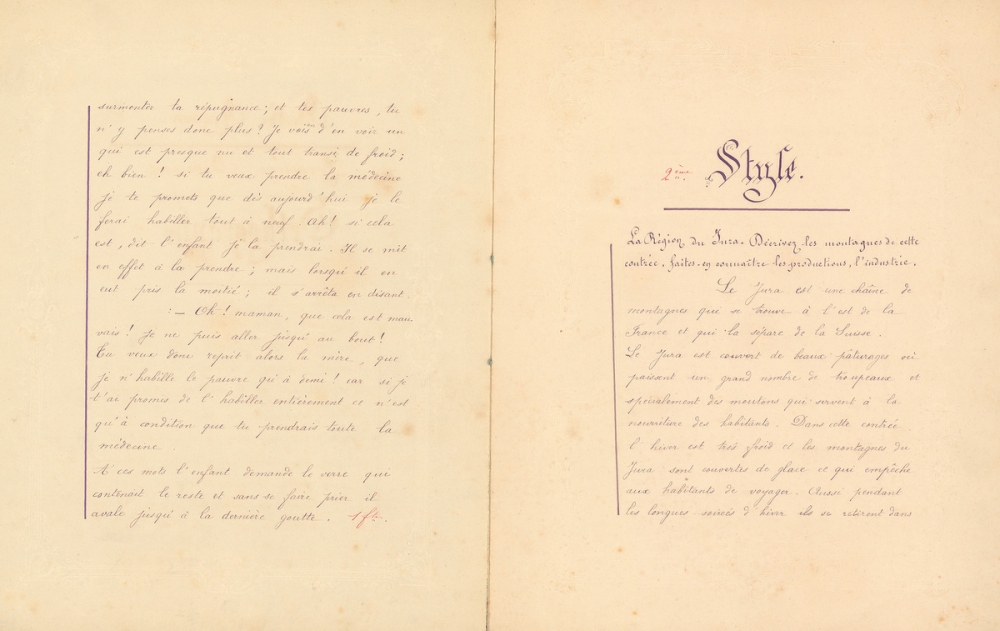 surmonter ta répugnance ; et tes pauvres, tu
n'y penses donc plus ? Je vois d'en voir un
qui est presque nu et tout transi de froid ;
eh bien ! si tu veux prendre la médecine
je te promets que dès aujourd'hui je le
ferai habiller tout à neuf. Oh ! si cela
est, dit l'enfant je la prendrai. Il se mit
en effet à la prendre ; mais lorsqu'il en
eut pris la moitié ; il s'arrêta en disant
: — Oh ! maman, que cela est mau-
vais ! Je ne puis aller jusqu'au bout !
Tu veux donc reprit alors la mère, que
je n'habille le pauvre qu'à demi ! car si je
t'ai promis de l'habiller entièrement ce n'est
qu'à condition que tu prendrais toute la
médecine
A ces mots l'enfant demande le verre qui
contenait le reste et sans se faire prier il
avale jusqu'à la dernière goutte. 1 fte.
2ème Style.
La Région du Jura. Décrivez les montagnes de cette
contrée. faites-en connaître les productions, l'industrie.
Le Jura est une chaîne de
montagnes qui se trouve à l'est de la
France et qui la sépare de la Suisse.
Le Jura est couvert de beaux pâturages où
paissent un grand nombre de troupeaux et
spécialement des moutons qui servent à la
nourriture des habitants. Dans cette contrée
l'hiver est très froid et les montagnes du
Jura sont couvertes de glace ce qui empêche
aux habitants de voyager. Aussi pendant
les longues soirées d'hiver ils se retirent dans